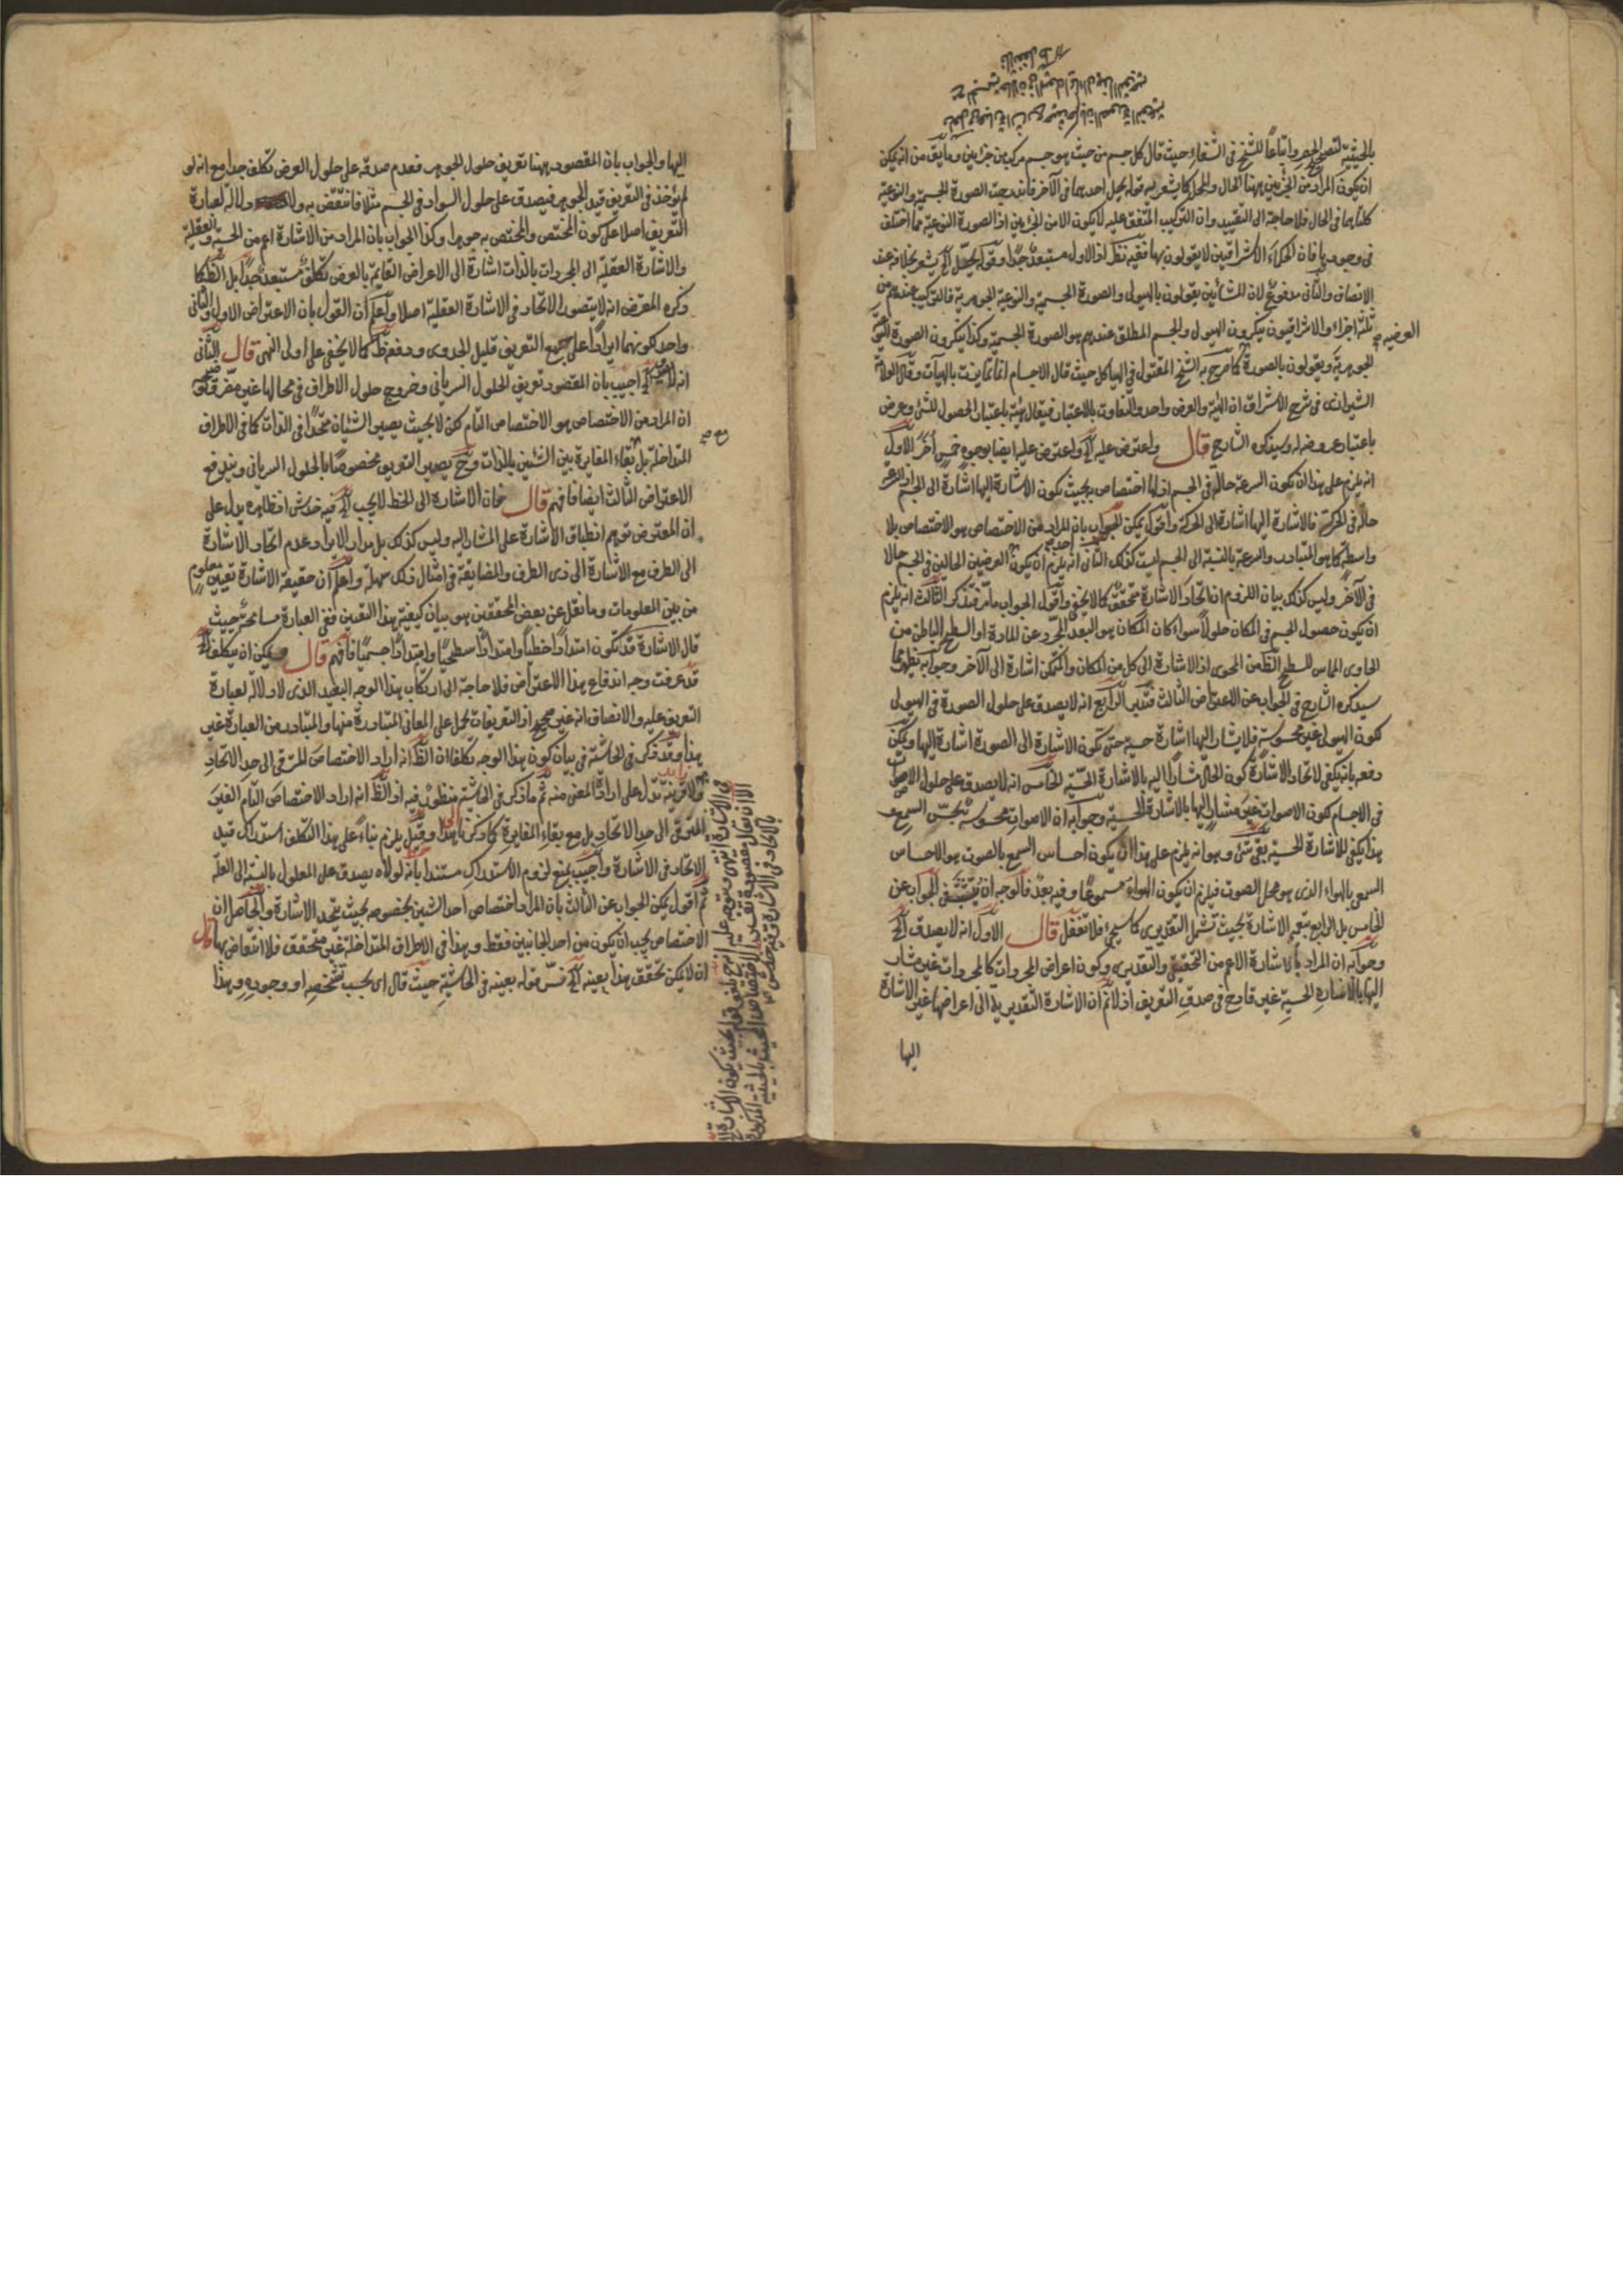 بالحيثية لتصحيح الحصر واتباعاً للشيخ في الشفاء حيث قال كل جسم من حيث هو جسم مركب من جزئين وما يق من انه يمكن
ان يكون المراد من الجزئين ههنا الحال والمحل كما يشعر به قوله يحل احدهما في الآخر فاندرجت الصورة الجسمية والنوعية
كلتاهما في الحال فلا حاجة الى التقييد وان التركيب المتفق عليه لا يكون الا من الجزئين اذ الصورة النوعية مما اختلف
في وجودها فان الحكماء الاشراقيين لا يقولون بها ففيه نظر اذ الاول مستبعد جدا وقوله يحل الخ يشعر بخلافه عند
الانصاف والثاني مدفوع لان المشائين يقولون بالهيولى والصورة الجسمية والنوعية الجوهرية فالتركيب عندهم من
ثلثة اجزاء والاشراقيون ينكرون الهيولى والجسم المطلق عندهم هو الصورة الجسمية وكذا ينكرون الصورة النوعية
العرضية صح
الجوهرية ويقولون بالصورة كما صرح به الشيخ المقتول في الهياكل حيث قال الاجسام انما تمايزت بالهيآت وقال العلامة
الشيرازي في شرح الاشراق ان الهيئة والعرض واحد والتفاوت بالاعتبار فيقال هيئة باعتبار الحصول للشئ وعرض
باعتبار عروضه له وسيذكره الشارح قال واعترض عليه الخ واعترض عليه ايضا بوجوه خمس آخر الاول
انه يلزم على هذا ان تكون السرعة حالة في الجسم اذ لها اختصاص به بحيث تكون الاشارة اليها اشارة الى الجسم اذ السرعة
حالة في الحركة فالاشارة اليها اشارة الى الحركة واقول يمكن الجواب بان المراد من الاختصاص هو الاختصاص بلا
واسطة كما هو المتبادر والسرعة بالنسبة الى الجسم ليست كذلك الثاني انه يلزم ان يكون احد العرضين الحالين في الجسم حالا
في الآخر وليس كذلك بيان اللزوم ان اتحاد الاشارة متحقق كما لا يخفى واقول الجواب ما مر فتذكر الثالث انه يلزم
ان يكون حصول الجسم في المكان حلولا سواء كان المكان هو البعد المجرد عن المادة او السطح الباطن من
الحاوى المماس للسطح الظ من المحوى اذ الاشارة الى كل من المكان والمتمكن اشارة الى الآخر وجوابه يظهر مما
سيذكره الشارح في الجواب عن الاعتراض الثالث فتدبر الرابع انه لا يصدق على حلول الصورة في الهيولى
لكون الهيولى غير محسوسة فلا يشار اليها اشارة حسية حتى تكون الاشارة الى الصورة اشارة اليها ويمكن
دفعه بانه يكفي لاتحاد الاشارة كون الحال مشارا اليه بالاشارة الحسية الخامس انه لا يصدق على حلول الاصوات
في الاجسام لكون الاصوات غير مشار اليها بالاشارة الحسية وجوابه ان الاصوات محسوسة بحس السمع و
هذا يكفي للاشارة الحسية بقي شئ وهو انه يلزم على هذا ان يكون احساس السمع بالصوت هو الاحساس
السمعي بالهواء الذي هو محل الصوت فيلزم ان يكون الهواء مسموعا وفيه بعد فالوجه ان يتشبث في الجواب عن
الخامس بل الرابع بتعميم الاشارة بحيث تشمل التقديري كما سيجئ فلا تغفل قال الاول انه لا يصدق الخ
وجوابه ان المراد بالاشارة الاعم من التحقيقي والتقديري وكون اعراض المجردات كالمجردات غير مشار
اليها بالاشارة الحسية غير قادح في صدق التعريف اذ لا نم ان الاشارة التقديرية الى اعراضها غير الاشارة
اليها
اليها والجواب بان المقصود ههنا تعريف حلول الجوهر فعدم صدقه على حلول العرض تكلف جدا مع انه لو
لم يؤخذ في التعريف قيد الجوهر فيصدق على حلول السواد في الجسم مثلا فانتقض به ولا دلالة لعبارة
التعريف اصلا على كون المختص والمختص به جوهرا وكذا الجواب بان المراد من الاشارة اعم من الحسية والعقلية
والاشارة العقلية الى المجردات بالذات اشارة الى الاعراض القائمة بالعرض تكلف مستبعد جدا بل الظ كما
ذكره المعترض انه لا يتصور الاتحاد في الاشارة العقلية اصلا واعلم ان القول بان الاعتراض الاول والثاني
واحد لكونهما ايرادا على جمع التعريف قليل الجدوى ودفعه ظ كما لا يخفى على اولى النهى قال الثاني
انه لا الخ اجيب بان المقصود تعريف الحلول السرياني وخروج حلول الاطراف في محالها غير مضر
ان المراد من الاختصاص هو الاختصاص التام لكن لا بحيث يصير الشيئان متحدا في الذات كما في الاطراف
المتداخلة بل مع بقاء المغايرة بين الشيئين بالذات وح يصير التعريف مخصوصا بالحلول السرياني ويندفع
الاعتراض الثالث ايضا فافهم قال فان الاشارة الى الخط لا يجب الخ فيه خدش اذ ظاهره يدل على
ان المعترض توهم انطباق الاشارة على المشار اليه وليس كذلك بل مدار الايراد عدم اتحاد الاشارة
الى الطرف مع الاشارة الى ذي الطرف والمضايقة في امثال ذلك سهلة واعلم ان حقيقة الاشارة تعيين معلوم
من بين المعلومات وما نقل عن بعض المحققين هو بيان كيفية هذا التعيين ففي العبارة مسامحة حيث
قال الاشارة قد تكون امتدادا خطيا وامتدادا سطحيا وامتدادا جسميا فافهم قال ويمكن ان يتكلف الخ
قد عرفت وجه اندفاع هذا الاعتراض فلا حاجة الى ارتكاب هذا الوجه البعيد الذي لا دلالة لعبارة
التعريف عليه والانصاف انه غير صحيح اذ التعريفات تحمل على المعاني المتبادرة منها والمتبادر من العبارة غير
هذا وقد ذكر في الحاشية في بيان كون هذا الوجه تكلفا ان الظ انه اراد الاختصاص المترقي الى حد الاتحاد
ولا قرينة تدل على ارادة المعنى منه ثم ما ذكر في الحاشية منظور فيه اذ الظ انه اراد الاختصاص التام الغير
المترقي الى حد الاتحاد بل مع بقاء المغايرة كما ذكرنا هذا وقيل يلزم بناء على هذا التكلف استدراك قيد
الاتحاد في الاشارة واجيب بمنع لزوم الاستدراك مستندا بانه لولاه يصدق على المعلول بالنسبة الى العلة
ثم اقول يمكن الجواب عن الثالث بان المراد اختصاص احد الشيئين بخصوصه بحيث يتحد الاشارة والحاصل ان
الاختصاص يجب ان يكون من احد الجانبين فقط وهذا في الاطراف المتداخلة غير متحقق فلا انتقاض بها قال
ان لا يمكن تحقق هذا بعينه الخ فسر قوله بعينه في الحاشية حيث قال اى بحسب تشخصه او وجوده وهذا